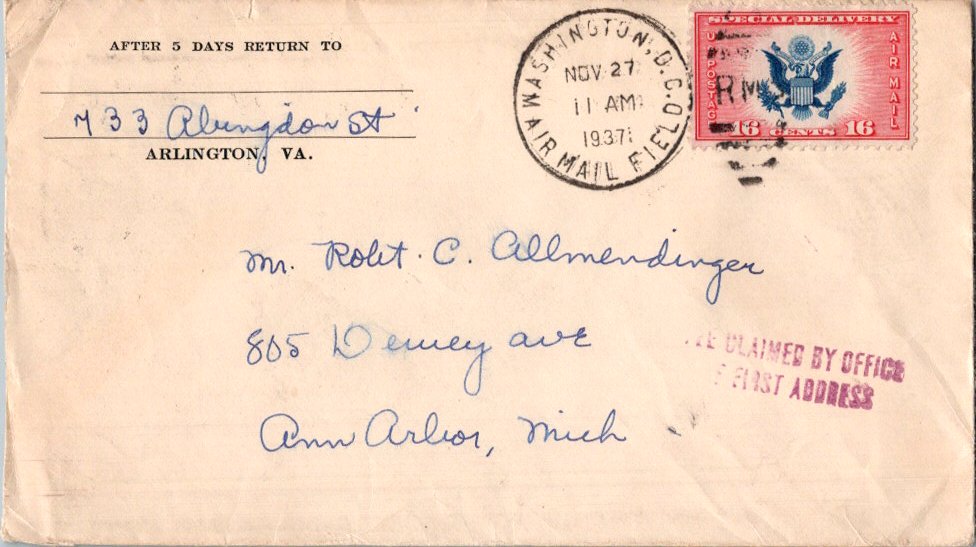 AFTER 5 DAYS RETURN TO
733 Abingdon St
ARLINGTON, VA.
WASHINGTON, D.C.
NOV 27
11 AM
1937
AIR MAIL FIELD
SPECIAL DELIVERY
U.S. POSTAGE
AIR MAIL
RM
16 CENTS 16
Mr. Robt. C. Allmendinger
805 Dewey ave
Ann Arbor, Mich
CLAIMED BY OFFICE
FIRST ADDRESS